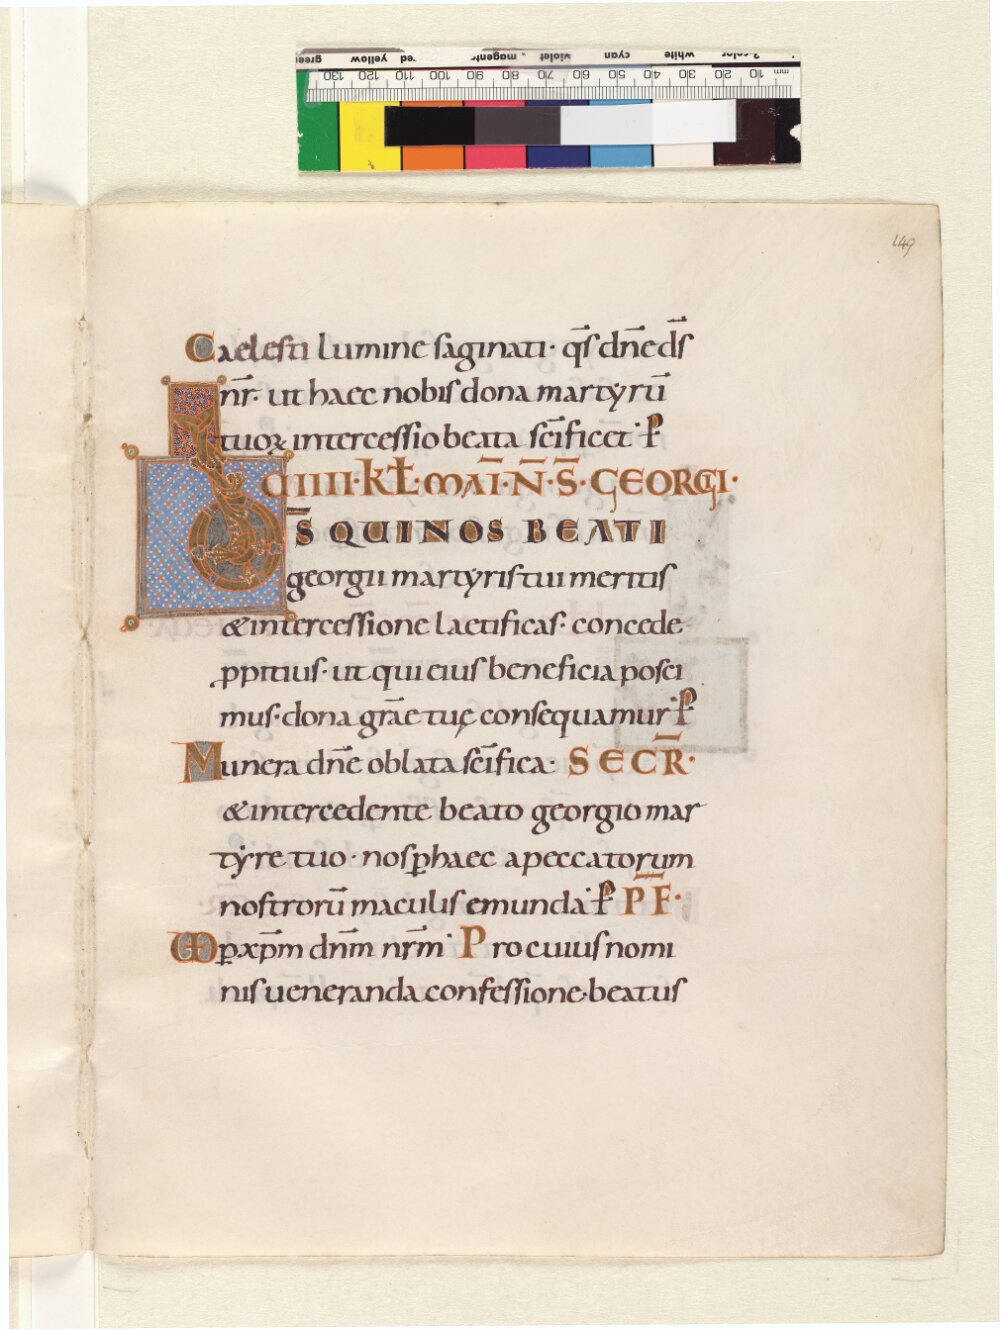 green yellow red magenta violet cyan white 3-color
130 120 110 100 90 80 70 60 50 40 30 20 10 mm
149
Caelesti lumine saginati· q̄s dn̄e d̄s
nr̄· ut haec nobis dona martyrū
tuoꝝ intercessio beata sc̄ificet· P̄
VIIII·KL̄·MAI·N̄·S̄·GEORGI·
D̄S QUI NOS BEATI
georgii martyris tui meritis
& intercessione laetificas· concede
ꝓpitius· ut qui eius beneficia posci
mus· dona gr̄ae tuę consequamur· P̄
Munera dn̄e oblata sc̄ifica· SECR̄·
& intercedente beato georgio mar
tyre tuo· nos ꝑ haec a peccatorum
nostrorū maculis emunda· P̄ P̄F̄·
VD ꝑ xp̄m dn̄m nr̄m· Pro cuius nomi
nis ueneranda confessione· beatus